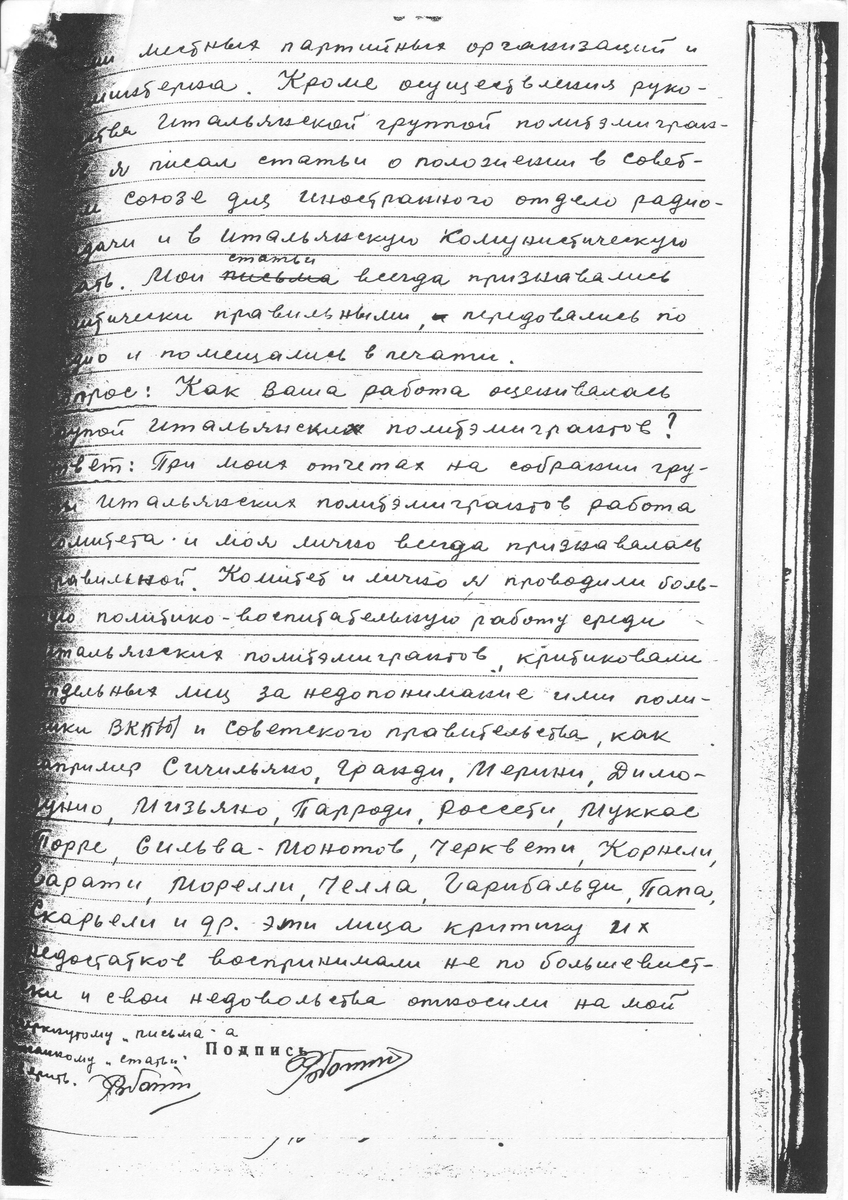 местных партийных организаций и
. Кроме осуществления руко-
Итальянской группой политэмигран-
я писал статьи о положении в Совет-
Союзе для Иностранного отдело радио-
и в Итальянскую Комунистическую
статьи
Мои письма всегда признавались
правильными, передовались по
и помещались в печати.
прос: Как Ваша работа оценивалась
рупой Итальянских политэмигрантов?
твет: При моих отчетах на собрании гру-
Итальянских политэмигрантов работа
комитета и моя лично всегда признавалась
равильной. Комитет и лично я проводили боль-
политико-воспитательную работу среди
итальянских политэмигрантов, критиковали
тдельных лиц за недопонимание ими поли-
ики ВКП/б/ и Советского правительства, как
апример Сичильяно, Гранди, Мерини, Димо-
Мизьяно, Парроди, Россети, Муккас
Торре, Сильва-Монотов, Черквети, Корнели,
арати, Морелли, Челла, Гарибальди, Папа,
Скарьели и др. Эти лица критику их
едостатков воспринимали не по большевист-
ки и свои недовольства относили на мой
еркнутому „письма" а
„статьи"
ерить.
Подпись